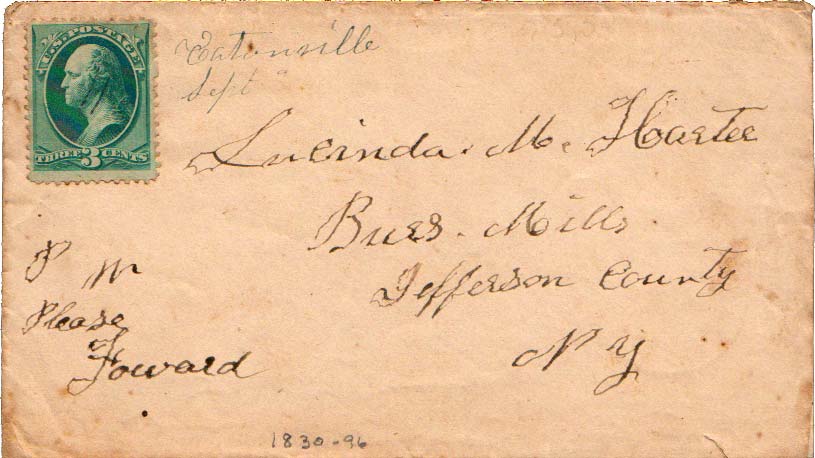 U.S. POSTAGE
THREE 3 CENTS
Eatonville
Sept
Lucinda. M. Harter
Burs. Mills.
Jefferson County
N Y
P M
Please
Foward
1830-96